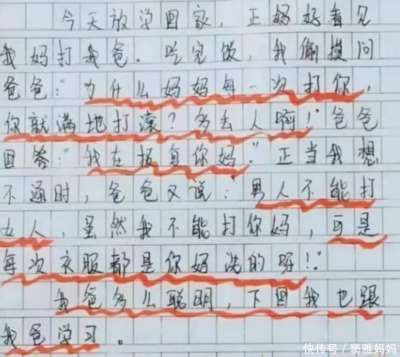 今天放学回家，正妈好看见
我妈打我爸。吃完饭，我偷摸问
爸爸："为什么妈妈每一次打你，
你就满地打滚？多丢人啊！"爸爸
回答："我在报复你妈。"正当我想
不通时，爸爸又说："男人不能打
女人，虽然我不能打你妈，可是
每次衣服都是你妈洗的呀！"
我爸多么聪明，下回我也跟
我爸学习。
快传号/窦雅妈妈